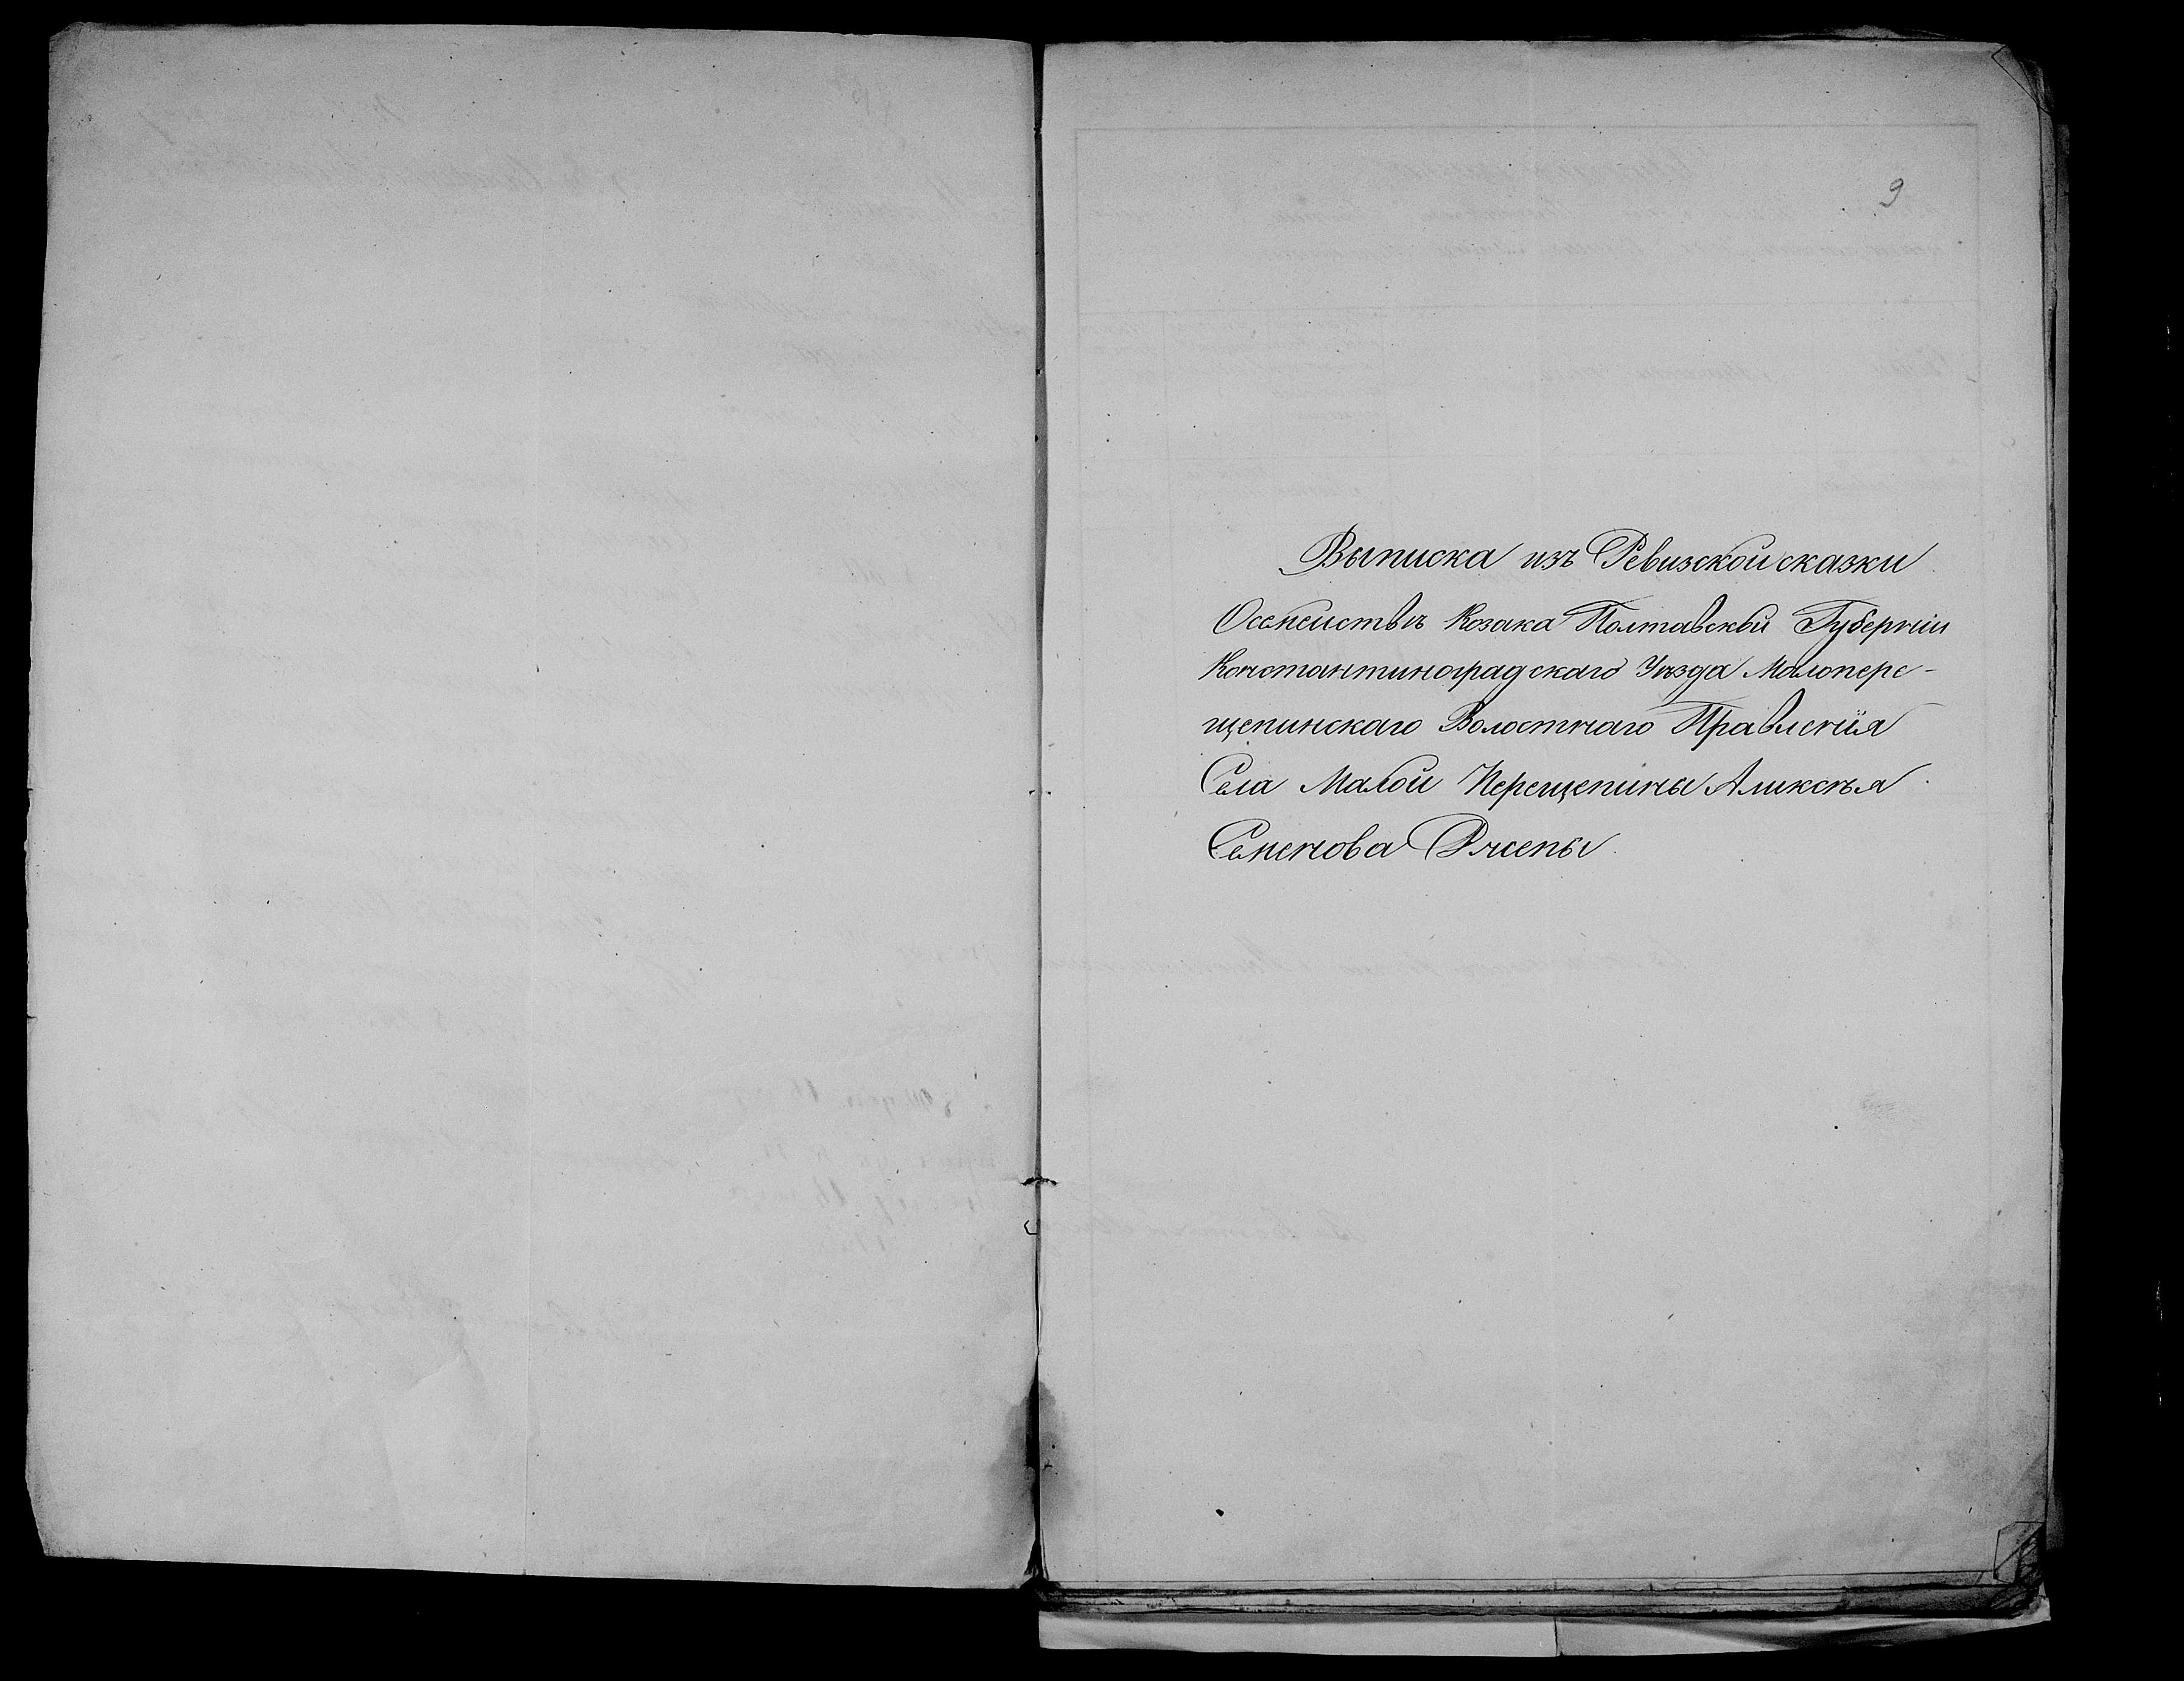 9
Выписка изъ Ревизской сказки
Осемействѣ Козака Полтавской Губерніи
Константиноградскаго Уѣзда Малопере-
щепинскаго Волостнаго Правленія
Села Малой Перещепины Аликсѣя
Семенова